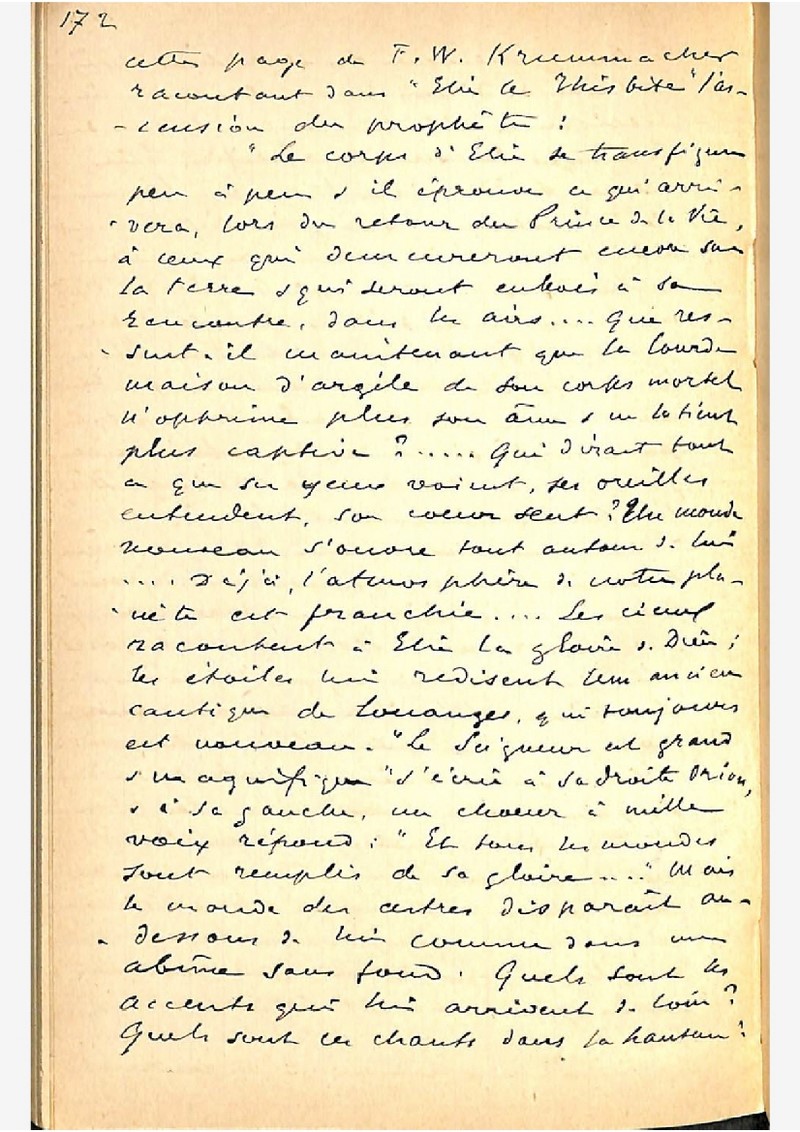 172
cette page de F. W. Krummacher
racontant dans "Elie le Thisbite" l'as-
-cension du prophète :
"Le corps d'Elie se transfigure
peu à peu & il éprouve ce qui arri-
-vera, lors du retour du Prince de la Vie,
à ceux qui demeureront encore sur
la terre & qui seront enlevés à sa
rencontre, dans les airs.... Que res-
-sent-il maintenant que la lourde
maison d'argile de son corps mortel
n'opprime plus son âme & ne la tient
plus captive ?..... Qui dirait tout
ce que ses yeux voient, ses oreilles
entendent, son coeur sent ? Un monde
nouveau s'ouvre tout autour de lui
.... Déjà, l'atmosphère de notre pla-
-nète est franchie.... Les cieux
racontent à Elie la gloire de Dieu ;
les étoiles lui redisent leur ancien
cantique de louanges, qui toujours
est nouveau. "Le Seigneur est grand
& magnifique" s'écrie à sa droite Orion,
& à sa gauche, un choeur à mille
voix répond : "Et tous les mondes
sont remplis de sa gloire...." Mais
le monde des astres disparaît au-
-dessous de lui comme dans un
abîme sans fond. Quels sont les
accents qui lui arrivent de loin ?
Quels sont ces chants dans la hauteur ?